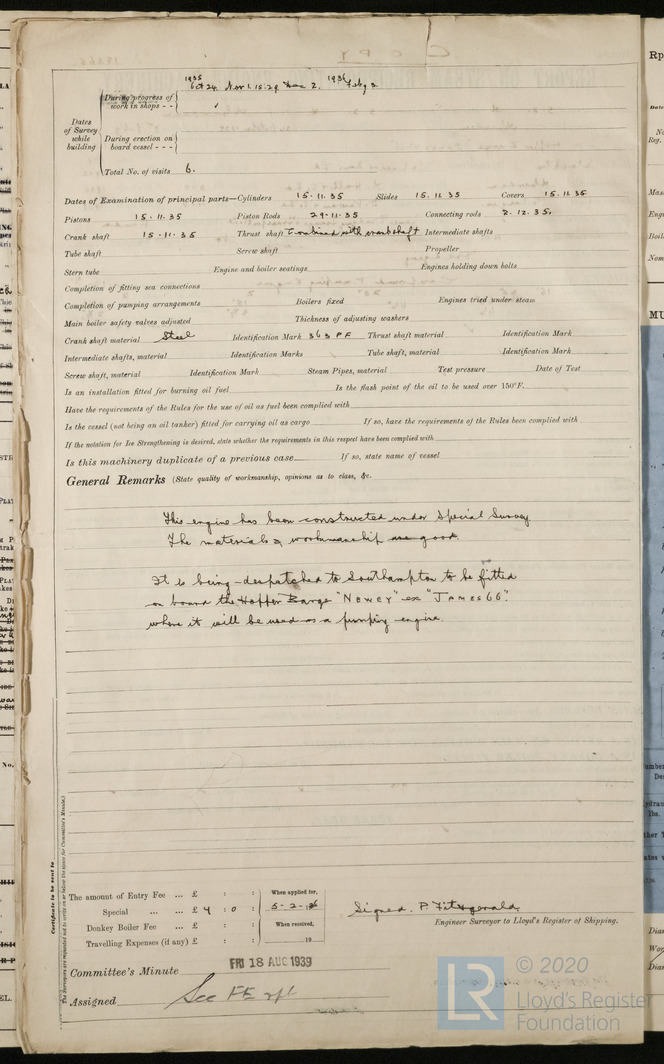 COPY
1935 1936
Oct 24. Nov 1. 15. 29. Dec 2. Feb 3
During progress of work in shops - -
Dates of Survey while building
During erection on board vessel - - -
Total No. of visits 6.
Dates of Examination of principal parts—Cylinders 15.11.35 Slides 15.11.35 Covers 15.11.35
Pistons 15.11.35 Piston Rods 29.11.35 Connecting rods 2.12.35.
Crank shaft 15.11.35 Thrust shaft Combined with crankshaft Intermediate shafts
Tube shaft Screw shaft Propeller
Stern tube Engine and boiler seatings Engines holding down bolts
Completion of fitting sea connections
Completion of pumping arrangements Boilers fixed Engines tried under steam
Main boiler safety valves adjusted Thickness of adjusting washers
Crank shaft material Steel Identification Mark 363 PF Thrust shaft material Identification Mark
Intermediate shafts, material Identification Marks Tube shaft, material Identification Mark
Screw shaft, material Identification Mark Steam Pipes, material Test pressure Date of Test
Is an installation fitted for burning oil fuel Is the flash point of the oil to be used over 150°F.
Have the requirements of the Rules for the use of oil as fuel been complied with
Is the vessel (not being an oil tanker) fitted for carrying oil as cargo If so, have the requirements of the Rules been complied with
If the notation for Ice Strengthening is desired, state whether the requirements in this respect have been complied with
Is this machinery duplicate of a previous case If so, state name of vessel
General Remarks (State quality of workmanship, opinions as to class, &c.
This engine has been constructed under Special Survey
The materials & workmanship are good.
It is being despatched to Southampton to be fitted
on board the Hopper Barge "Newey" ex "James 66".
where it will be used as a pumping engine.
Certificate to be sent to
The Surveyors are requested not to write on or below the space for Committee's Minute.
The amount of Entry Fee ... £ : : When applied for,
Special ... ... £ 4 : 0 : 5-2-36
Donkey Boiler Fee ... £ : : When received,
Travelling Expenses (if any) £ : : 19
Signed. P. Fitzgerald
Engineer Surveyor to Lloyd's Register of Shipping.
Committee's Minute FRI 18 AUG 1939
Assigned See FE rpt
LR © 2020
Lloyd's Register
Foundation